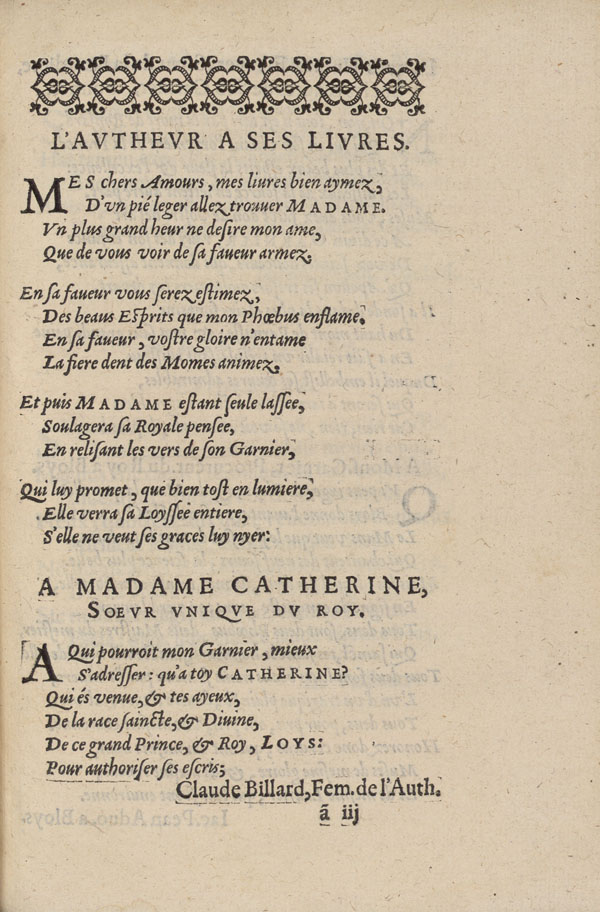 L'AVTHEVR A SES LIVRES.
MES chers Amours, mes liures bien aymez,
D'vn pié leger allez trouuer MADAME.
Vn plus grand heur ne desire mon ame,
Que de vous voir de sa faueur armez.
En sa faueur vous serez estimez,
Des beaus Esprits que mon Phœbus enflame.
En sa faueur, vostre gloire n'entame
La fiere dent des Momes animez.
Et puis MADAME estant seule lassee,
Soulagera sa Royale pensee,
En relisant les vers de son Garnier,
Qui luy promet, que bien tost en lumiere,
Elle verra sa Loyssee entiere,
S'elle ne veut ses graces luy nyer:
A MADAME CATHERINE,
SOEVR VNIQVE DV ROY.
A Qui pourroit mon Garnier, mieux
S'adresser: qu'a toy CATHERINE?
Qui és venue, & tes ayeux,
De la race saincte, & Divine,
De ce grand Prince, & Roy, LOYS:
Pour authoriser ses escris;
Claude Billard, Fem. de l'Auth.
ã iij